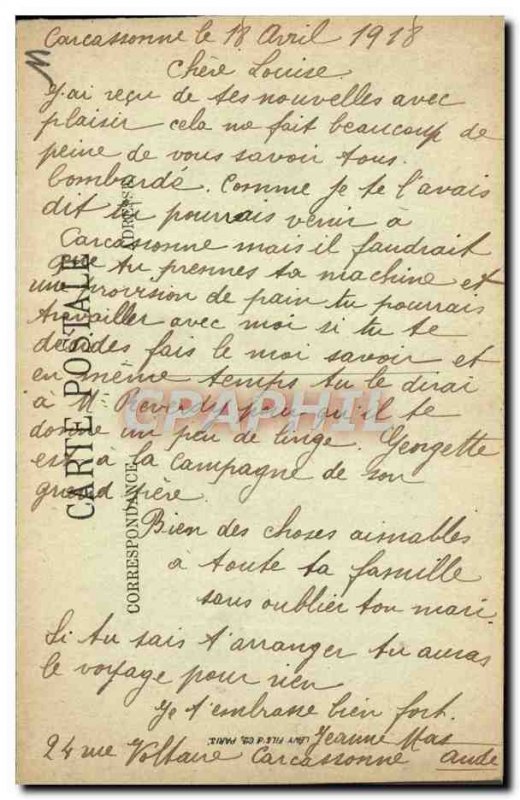 Carcassonne le 18 Avril 1918
Chère Louise.
J'ai reçu de tes nouvelles avec
plaisir cela me fait beaucoup de
peine de vous savoir tous
bombardé. Comme je te l'avais
dit tu pourrais venir à
Carcassonne mais il faudrait
que tu prennes ta machine et
une provision de pain tu pourrais
travailler avec moi si tu te
décides fais le moi savoir et
en même temps tu le dirai
à M. Reverdy pour qu'il te
donne un peu de linge. Georgette
est à la campagne de son
grand père.
Bien des choses aimables
à toute ta famille
sans oublier ton mari.
Si tu sais t'arranger tu auras
le voyage pour rien
Je t'embrasse bien fort.
Jeanne Mas
24 rue Voltaire Carcassonne Aude
CARTE POSTALE
CORRESPONDANCE
ADRESSE
LÉVY FILS & Cie, PARIS.
CPAPHIL